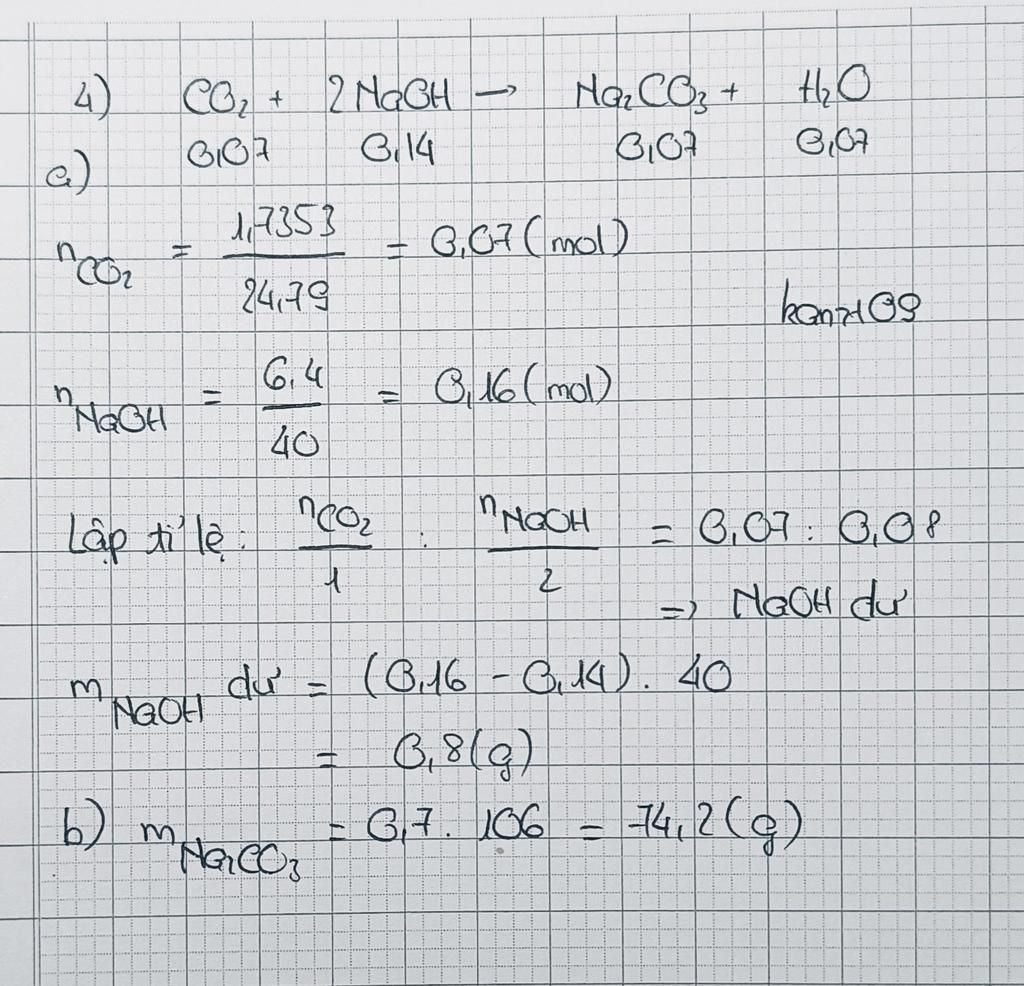 4) CO₂ + 2NaOH → Na₂CO₃ + H₂O
0,07 0,14 0,07 0,07
a)
nCO₂ = 1,7353 / 24,79 = 0,07 (mol)
kanz109
nNaOH = 6,4 / 40 = 0,16 (mol)
Lập tỉ lệ: nCO₂ / 1 : nNaOH / 2 = 0,07 : 0,08
=> NaOH dư
mNaOH dư = (0,16 - 0,14). 40
= 0,8 (g)
b) mNa₂CO₃ = 0,7. 106 = 74,2 (g)